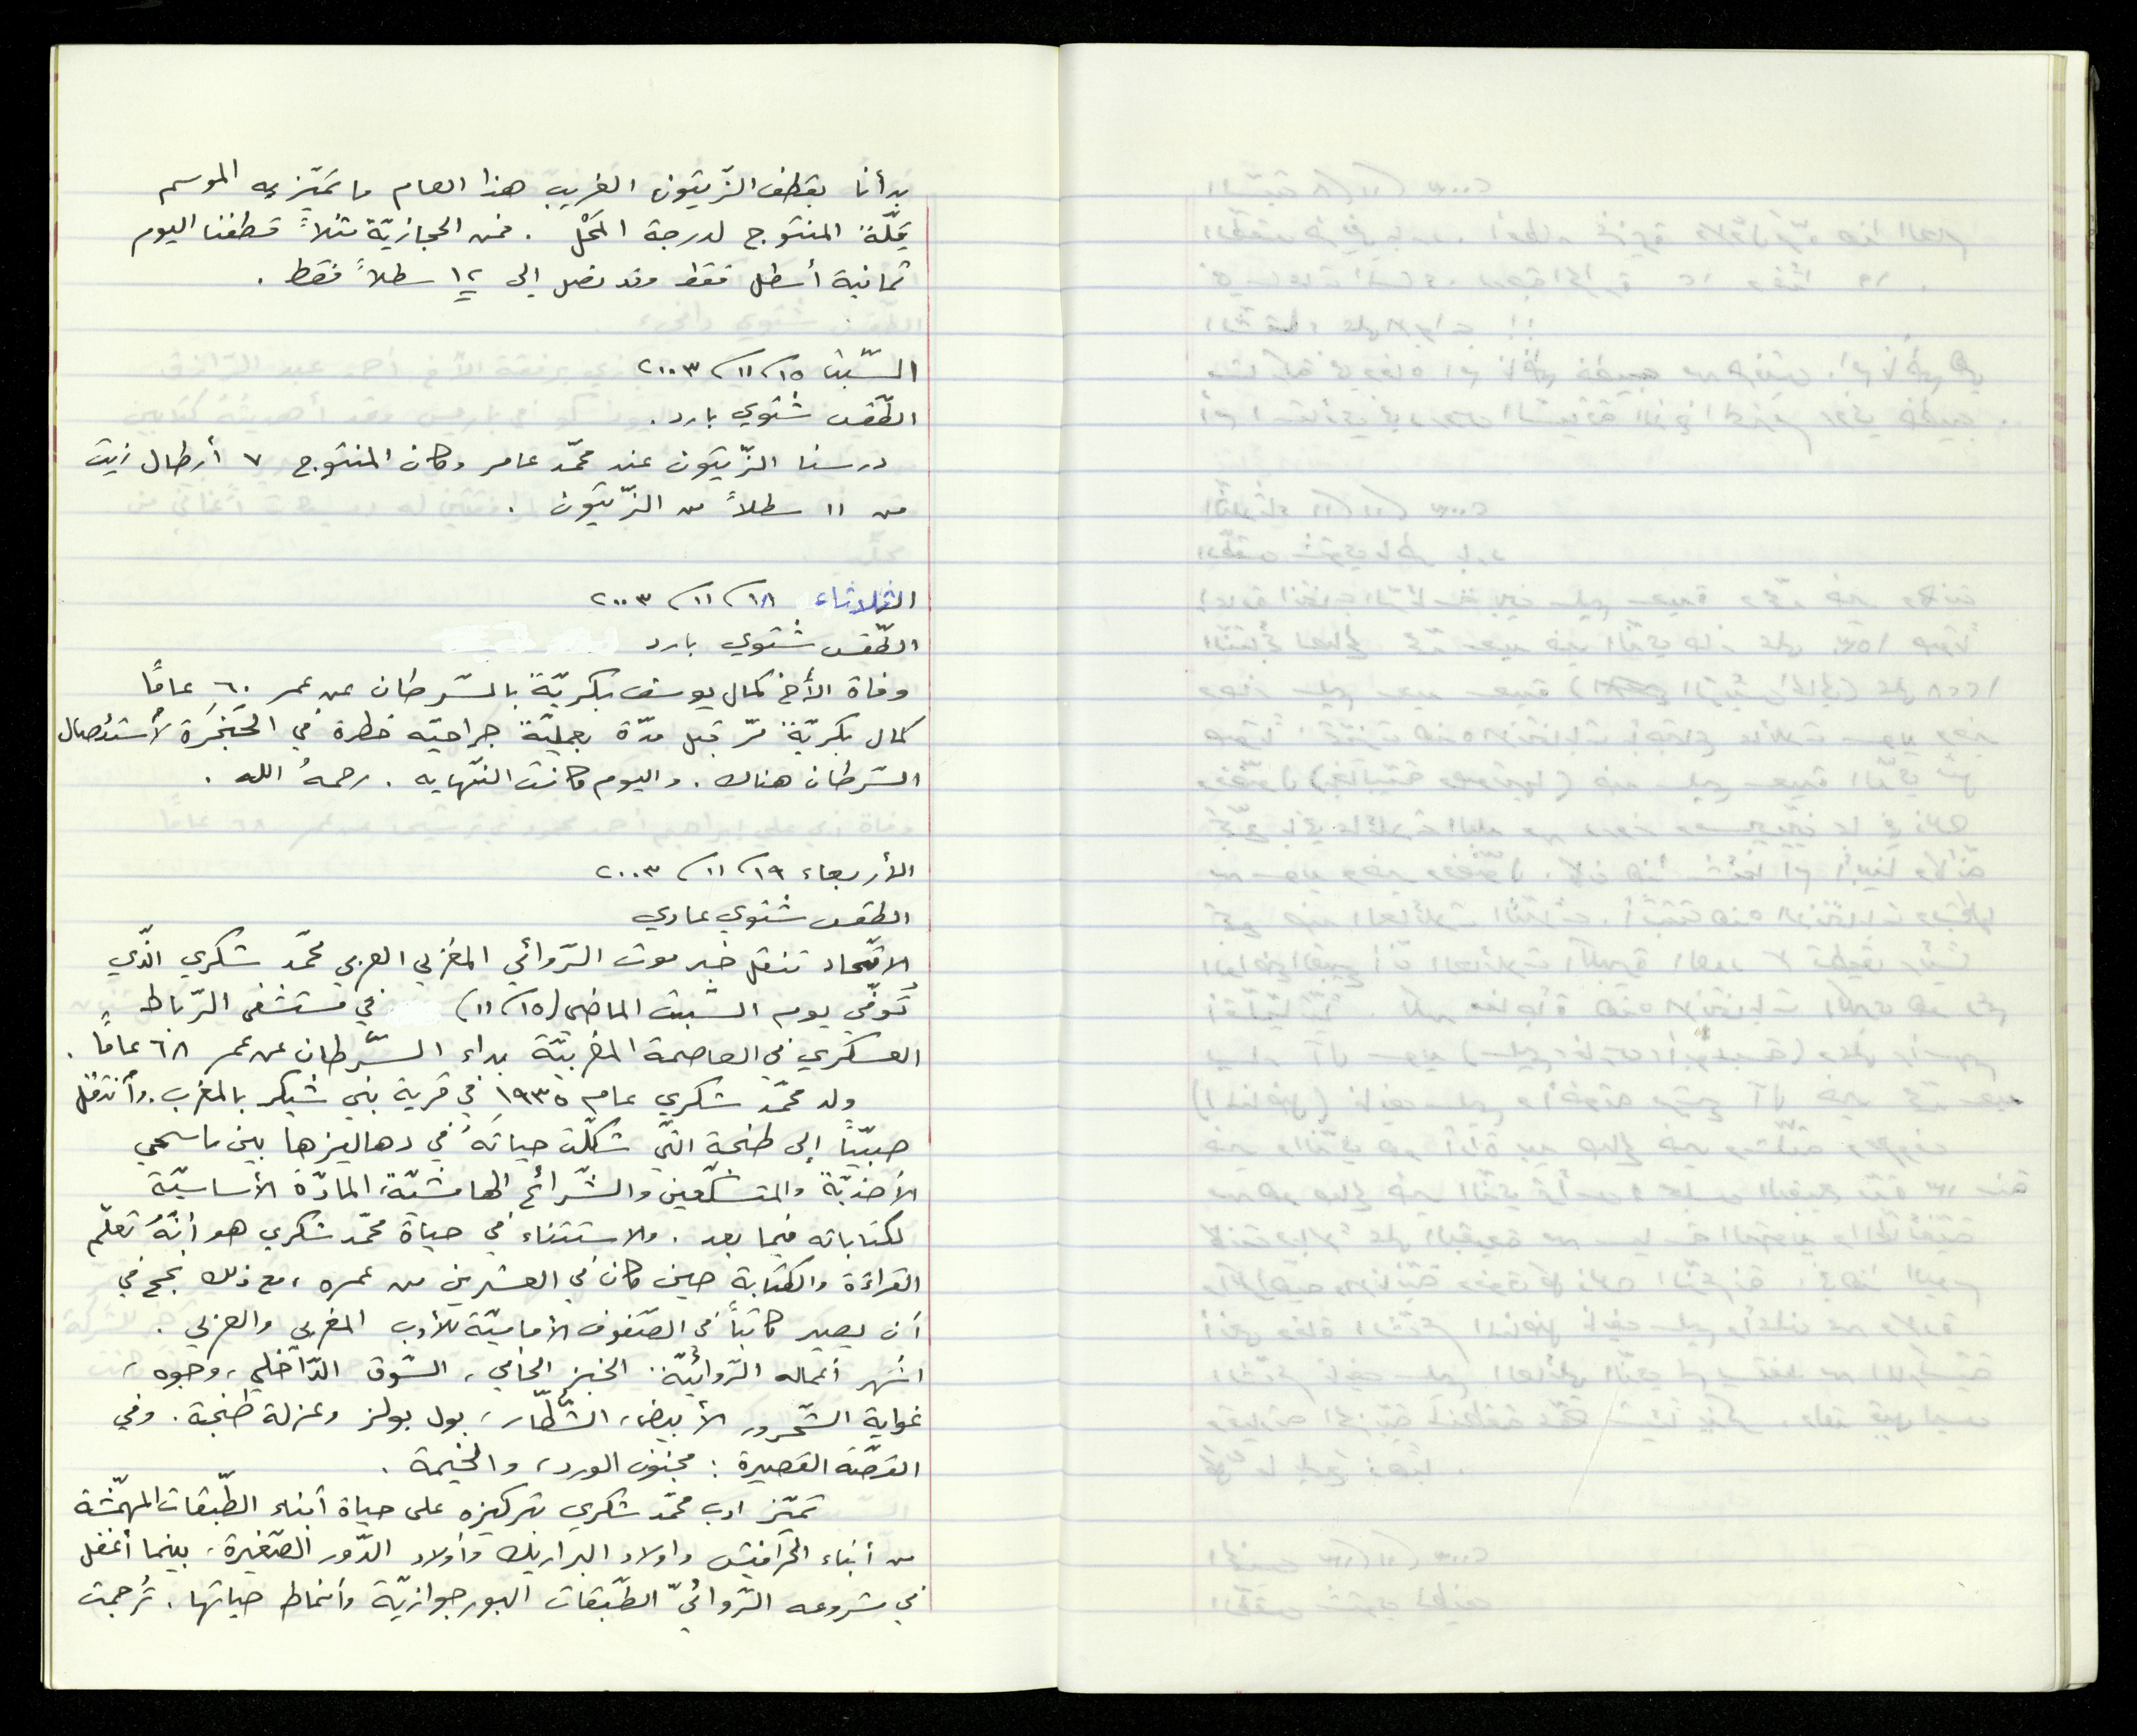 بدأنا بقطف الزّيتون الغريب هذا العام ما تميّز به الموسم
قِلّة المنتوج لدرجة المَحْل . فمن الحجازيّة مثلاً قطفنا اليوم
ثمانية أسطل فقط وقد نصل إلى ١٢ سطلاً فقط .
السّبت ١٥/١١/٢٠٠٣
الطّقس شتوي بارد .
درسنا الزّيتون عند محمّد عامر وكان المنتوج ٧ أرطال زيت
من ١١ سطلاً من الزّيتون .
الثلاثاء ١٨/١١/٢٠٠٣
الطّقس شتوي بارد
وفاة الأخ كمال يوسف بكريّة بالسّرطان عن عمر ٦٠ عامًا
كمال بكريّة مرّ قبل مدّة بعمليّة جراحيّه خطرة في الحَنجَرَة لأستئصال
السّرطان هناك . واليوم كانت النّهايه . رحمهُ الله .
الأربعاء ١٩/١١/٢٠٠٣
الطقس شتوي عادي
الاتّحاد تنقل خبر موت الرّوائي المغربي العربي محمّد شكري الّذي
تُوفّي يوم السّبت الماضي (١٥/١١) في مستشفى الرّباط
العسكري في العاصمة المغربيّة بداء السّرطان عن عمر ٦٨ عامًا .
ولد محمّد شكري عام ١٩٣٥ في قرية بني شيكر بالمغرب . وأنتقل
صبيًّا إلى طنجة الّتي شكّلت حياتَهُ في دهاليزها بين ماسحي
الأحذيّة والمتسكّعين والشّرائح الهامشيّة، المادّة الأساسيّة
لكتاباته فيما بعد . والاستثناء في حياة محمّد شكري هو أنّهُ تعلّم
القراءة والكتابة حين كان في العشرين من عمره ، مع ذلك نجح في
أن يصير كاتبًا في الصّفوف الأماميّة للأدب المغربي والعربي .
اشهر أعماله الرّوائيّة: الخبز الحافي، السّوق الدّاخلي، وجوه،
غواية الشّحرور الأبيض، الشُّطّار، بول بولز وعزلة طنجة . وفي
القصّة القصيرة : مجنون الورد، والخيمة .
تميّز ادب محمّد شكري بتركيزه على حياة أبناء الطّبقات المهمّشة
من أبناء الحرافيش واولاد البراريك وأولاد الدّور الصّغيرة، بينما أغفل
في مشروعه الرّوائيّ الطّبقات البورجوازيّة وأنماط حياتها . تُرجمت